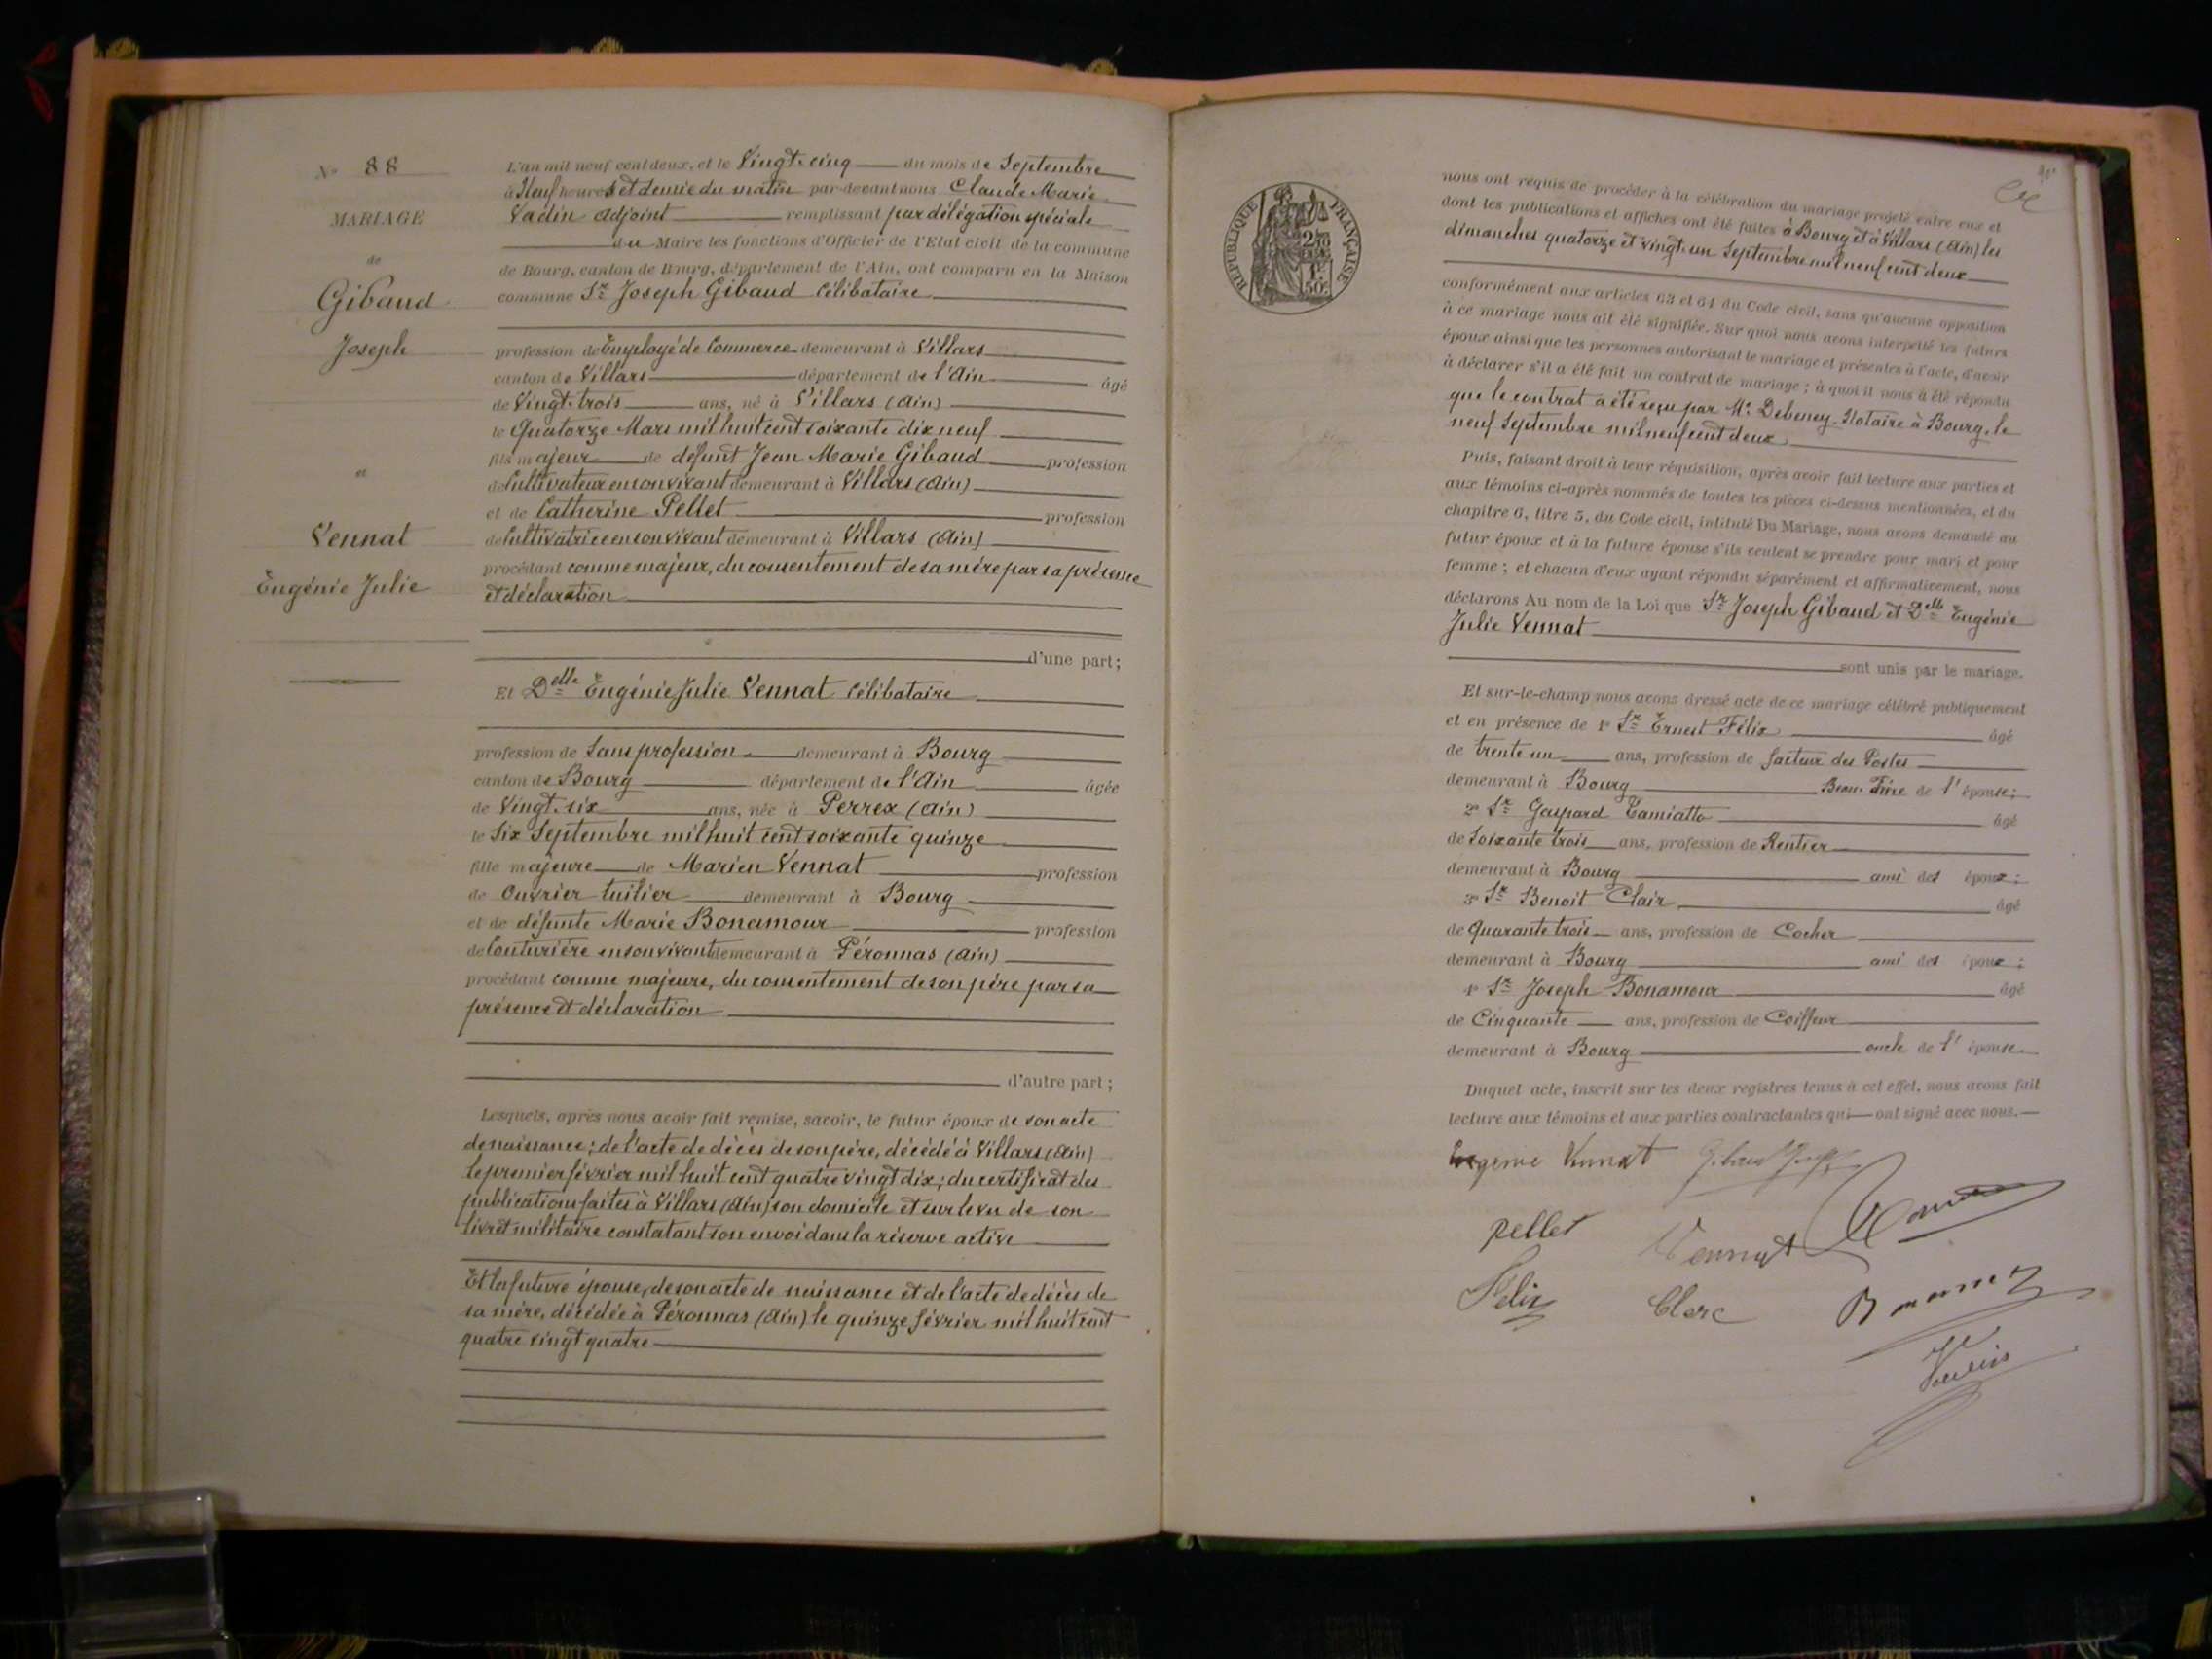 N° 88
MARIAGE
de
Gibaud
Joseph
et
Vennat
Eugénie Julie
L'an mil neuf cent deux, et le Vingt-cinq du mois de Septembre
à Neuf heures et demie du matin par-devant nous Claude Marie
Vadin adjoint remplissant par délégation spéciale
du Maire les fonctions d'Officier de l'Etat civil de la commune
de Bourg, canton de Bourg, département de l'Ain, ont comparu en la Maison
commune Sr Joseph Gibaud Célibataire
profession de Employé de Commerce demeurant à Villars
canton de Villars département de l'Ain âgé
de Vingt-trois ans, né à Villars (Ain)
le Quatorze Mars mil huit cent soixante dix neuf
fils majeur de défunt Jean Marie Gibaud profession
de Cultivateur en son vivant demeurant à Villars (Ain)
et de Catherine Pellet profession
de Cultivatrice en son vivant demeurant à Villars (Ain)
procédant comme majeur, du consentement de sa mère par sa présence
et déclaration
d'une part;
Et Delle Eugénie Julie Vennat Célibataire
profession de Sans profession demeurant à Bourg
canton de Bourg département de l'Ain âgée
de Vingt-six ans, née à Perrex (Ain)
le Six Septembre mil huit cent soixante quinze
fille majeure de Marien Vennat profession
de Ouvrier tuilier demeurant à Bourg
et de défunte Marie Bonamour profession
de Couturière en son vivant demeurant à Péronnas (Ain)
procédant comme majeure, du consentement de son père par sa
présence et déclaration
d'autre part;
Lesquels, après nous avoir fait remise, savoir, le futur époux de son acte
de naissance; de l'acte de décès de son père, décédé à Villars (Ain)
le premier février mil huit cent quatre vingt dix; du certificat des
publications faites à Villars (Ain) son domicile et sur le vu de son
livret militaire constatant son envoi dans la réserve active
Et la future épouse, de son acte de naissance et de l'acte de décès de
sa mère, décédée à Péronnas (Ain) le quinze février mil huit cent
quatre vingt quatre
RÉPUBLIQUE FRANÇAISE
nous ont requis de procéder à la célébration du mariage projeté entre eux et
dont les publications et affiches ont été faites à Bourg et à Villars (Ain) les
dimanches quatorze et vingt-un Septembre mil neuf cent deux
conformément aux articles 63 et 64 du Code civil, sans qu'aucune opposition
à ce mariage nous ait été signifiée. Sur quoi nous avons interpellé les futurs
époux ainsi que les personnes autorisant le mariage et présentes à l'acte, d'avoir
à déclarer s'il a été fait un contrat de mariage; à quoi il nous a été répondu
que le contrat a été reçu par Me Debeney Notaire à Bourg, le
neuf Septembre mil neuf cent deux
Puis, faisant droit à leur réquisition, après avoir fait lecture aux parties et
aux témoins ci-après nommés de toutes les pièces ci-dessus mentionnées, et du
chapitre 6, titre 5, du Code civil, intitulé Du Mariage, nous avons demandé au
futur époux et à la future épouse s'ils veulent se prendre pour mari et pour
femme; et chacun d'eux ayant répondu séparément et affirmativement, nous
déclarons Au nom de la Loi que Sr Joseph Gibaud et Delle Eugénie
Julie Vennat
sont unis par le mariage.
Et sur-le-champ nous avons dressé acte de ce mariage célébré publiquement
et en présence de 1° Sr Ernest Félix âgé
de trente un ans, profession de facteur des Postes
demeurant à Bourg Beau-Frère de l'épouse;
2° Sr Gaspard Tamiatto âgé
de Soixante trois ans, profession de Rentier
demeurant à Bourg ami des époux;
3° Sr Benoit Clair âgé
de Quarante trois ans, profession de Cocher
demeurant à Bourg ami des époux;
4° Sr Joseph Bonamour âgé
de Cinquante ans, profession de Coiffeur
demeurant à Bourg oncle de l'épouse.
Duquel acte, inscrit sur les deux registres tenus à cet effet, nous avons fait
lecture aux témoins et aux parties contractantes qui ont signé avec nous.
Eugenie Vennat Gibaud Joseph
pellet Vennat
Félix Clerc